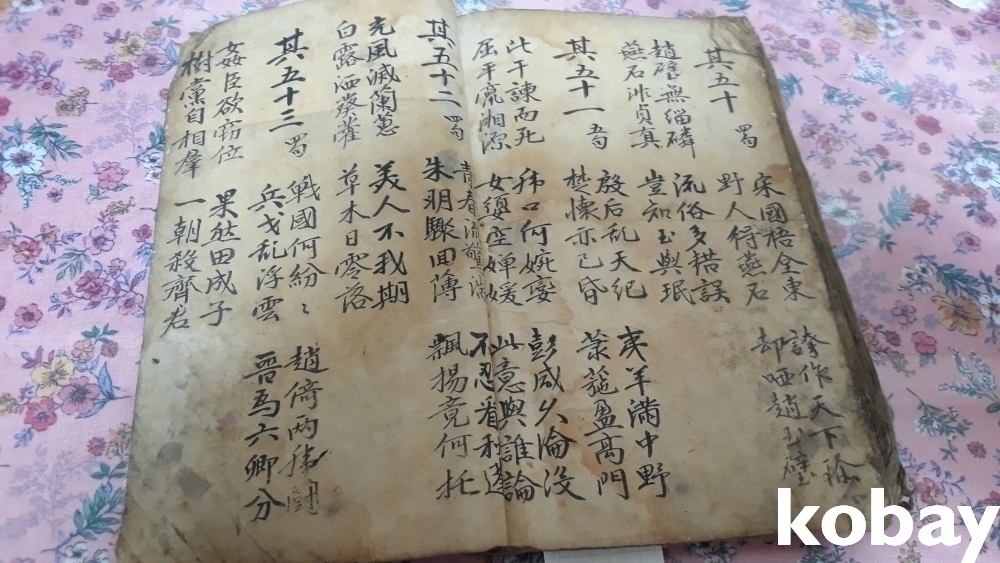 其五十 蜀
宋國梧全東 誇作天下珎
野人得燕石 却哂趙王璧
趙璧無緇磷 流俗多錯誤
燕石非貞真 豈知玉與珉
其五十一 蜀
殷后乱天紀 夷羊滿中野
楚懷亦已昏 菉葹盈高門
比干諫而死 乕口何婉孌 彭咸久淪沒
屈平竄湘源 女嬃空嬋媛 此意與誰論
其五十二 蜀
青春流驚湍 不忍看秋蓬
朱明驟回薄 飄揚竟何托
光風滅蘭蕙 美人不我期
白露洒葵藿 草木日零落
其五十三 蜀
戰國何紛〻 趙倚兩乕鬪
兵戈乱浮雲 晉爲六卿分
姦臣欲窃位 果然田成子
樹黨自相羣 一朝殺齊君
kobay